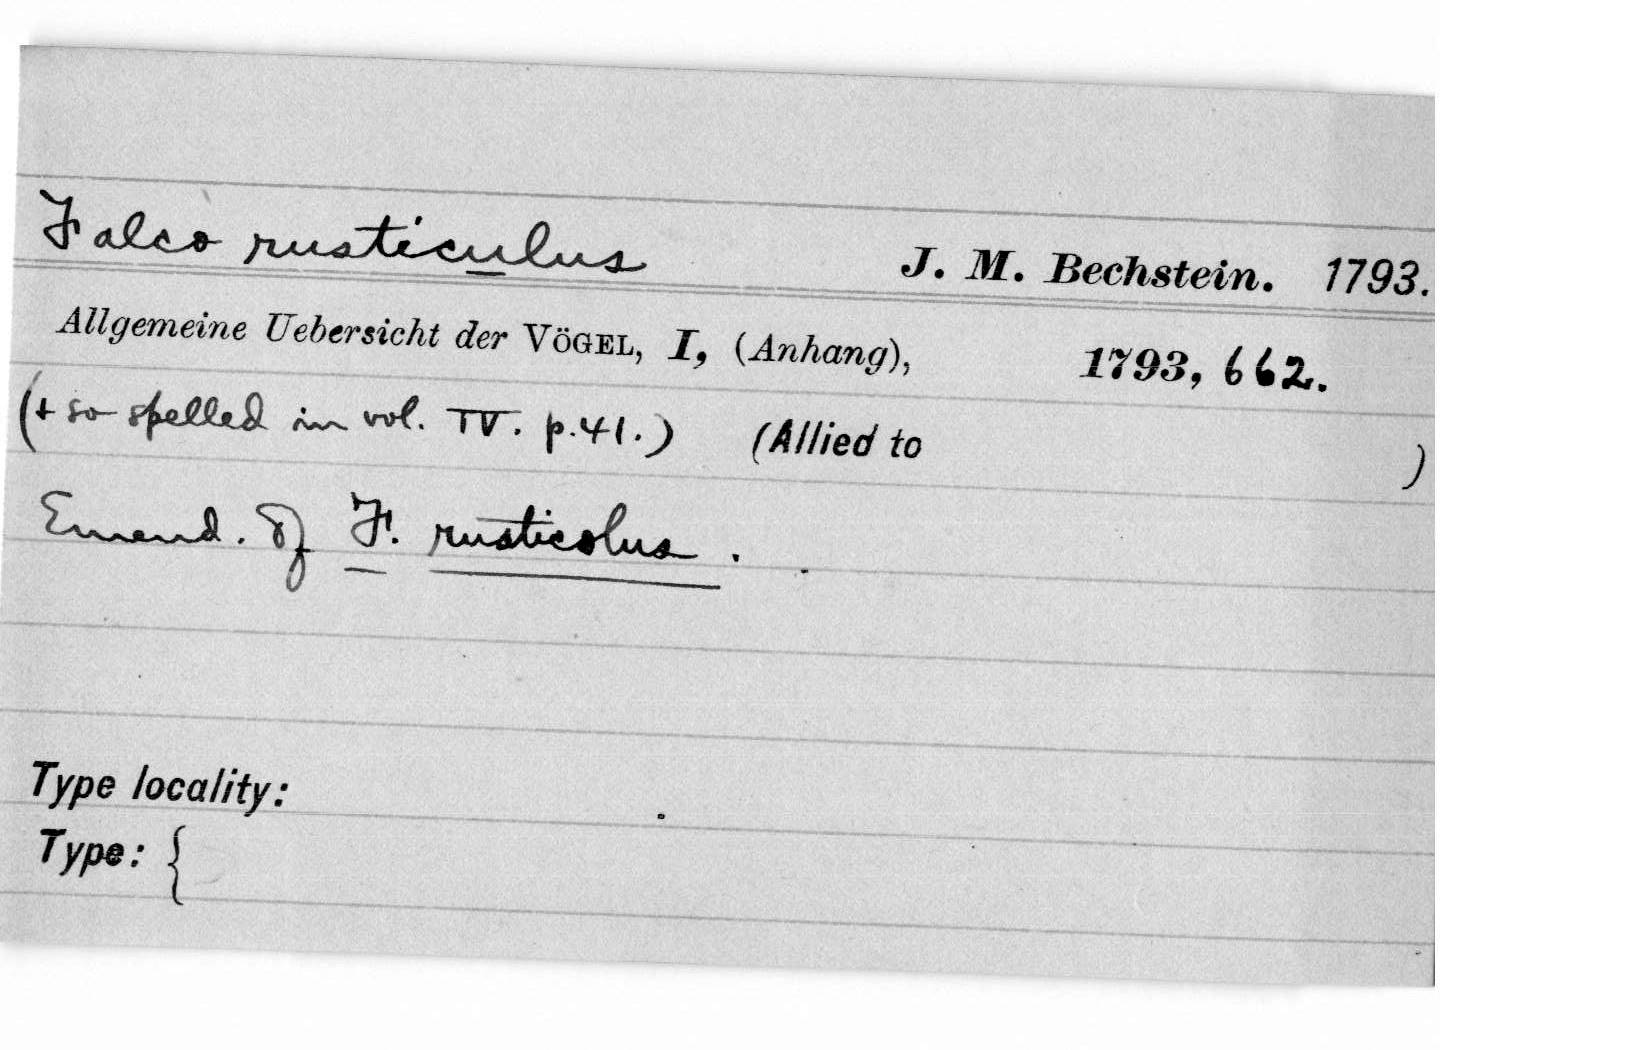 Falco rusticulus J. M. Bechstein. 1793.
Allgemeine Uebersicht der VÖGEL, I, (Anhang), 1793, 662.
(+ so spelled in vol. IV. p. 41.) (Allied to )
Emend. of F. rusticolus.
Type locality:
Type: {